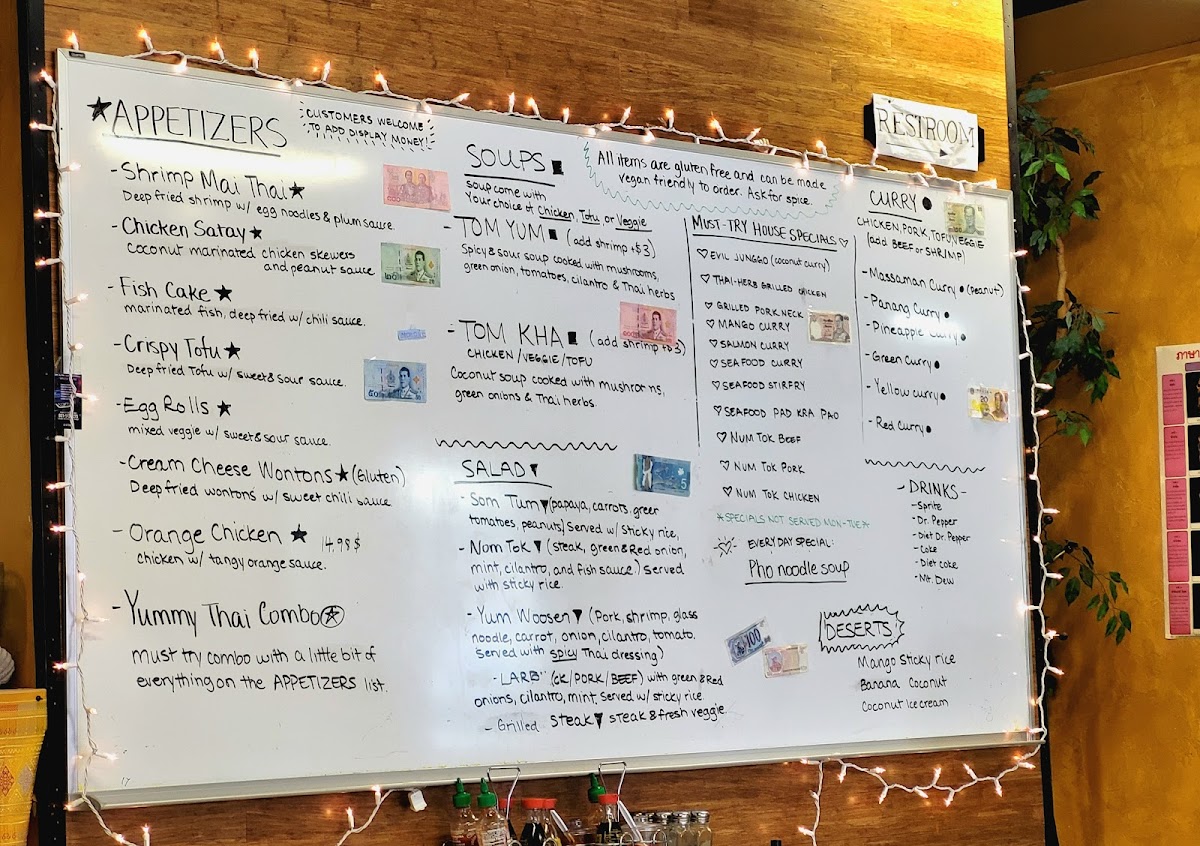 ★APPETIZERS
CUSTOMERS WELCOME
TO ADD DISPLAY MONEY!
-Shrimp Mai Thai★
Deep fried shrimp w/ egg noodles & plum sauce.
-Chicken Satay★
Coconut marinated chicken skewers
and peanut sauce
-Fish Cake★
marinated fish, deep fried w/ chili sauce.
-Crispy Tofu★
Deep fried Tofu w/ sweet & sour sauce.
-Egg Rolls ★
mixed veggie w/ sweet & sour sauce.
-Cream Cheese Wontons★(Gluten)
Deep fried wontons w/ sweet chili sauce
-Orange Chicken ★ 14.98$
chicken w/ tangy orange sauce.
-Yummy Thai Combo★
must try combo with a little bit of
everything on the APPETIZERS list.
SOUPS■
soup come with
Your choice of Chicken, Tofu or Veggie
-TOM YUM■ (add shrimp +$3)
Spicy & sour soup cooked with mushrooms,
green onion, tomatoes, cilantro & Thai herbs
-TOM KHA■ (add shrimp +$3)
CHICKEN/VEGGIE/TOFU
Coconut soup cooked with mushrooms,
green onions & Thai herbs.
SALAD▼
-Som Tum▼(papaya, carrots, green
tomatoes, peanuts) served w/ sticky rice,
-Nom Tok▼ (steak, green & Red onion,
mint, cilantro, and fish sauce.) served
with sticky rice.
-Yum Woosen▼ (Pork, shrimp, glass
noodle, carrot, onion, cilantro, tomato,
served with spicy Thai dressing)
-LARB" (CK/PORK/BEEF) with green & Red
onions, cilantro, mint, served w/ sticky rice.
-Grilled steak▼ steak & fresh veggie
All items are gluten free and can be made
vegan friendly to order. Ask for spice.
MUST-TRY HOUSE SPECIALS♡
♡EVIL JUNGGO (coconut curry)
♡THAI-HERB GRILLED CHICKEN
♡GRILLED PORK NECK
♡MANGO CURRY
♡SALMON CURRY
♡SEAFOOD CURRY
♡SEAFOOD STIRFRY
♡SEAFOOD PAD KRA PAO
♡NUM TOK BEEF
♡NUM TOK PORK
♡NUM TOK CHICKEN
*SPECIALS NOT SERVED MON-TUE*
EVERYDAY SPECIAL:
Pho noodle soup
RESTROOM
CURRY●
CHICKEN, PORK, TOFU, VEGGIE
(add BEEF or SHRIMP)
-Massaman Curry●(Peanut)
-Panang Curry●
-Pineapple Curry●
-Green Curry●
-Yellow Curry●
-Red Curry●
-DRINKS-
-Sprite
-Dr. Pepper
-Diet Dr. Pepper
-Coke
-Diet coke
-Mt. Dew
DESERTS
Mango Sticky rice
Banana Coconut
Coconut Ice cream
100
5
20
17